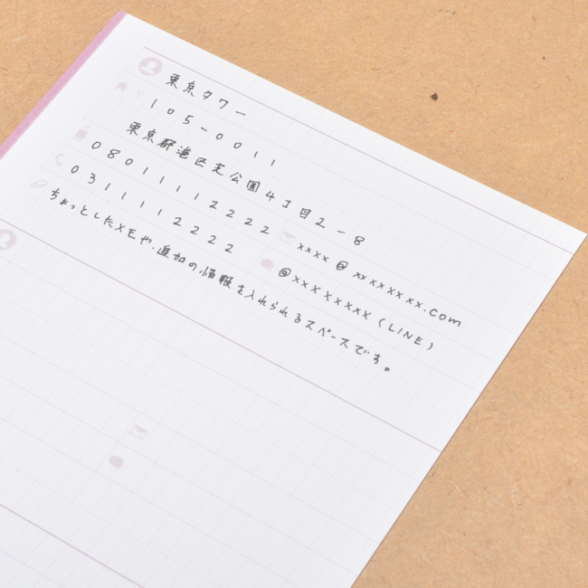 東京タワー
105-0011
東京都港区芝公園4丁目2-8
08011112222
xxxx@xxxxxxxx.com
0311112222
@xxxxxxxxx(LINE)
ちょっとしたメモや、追加の情報を入れられるスペースです。